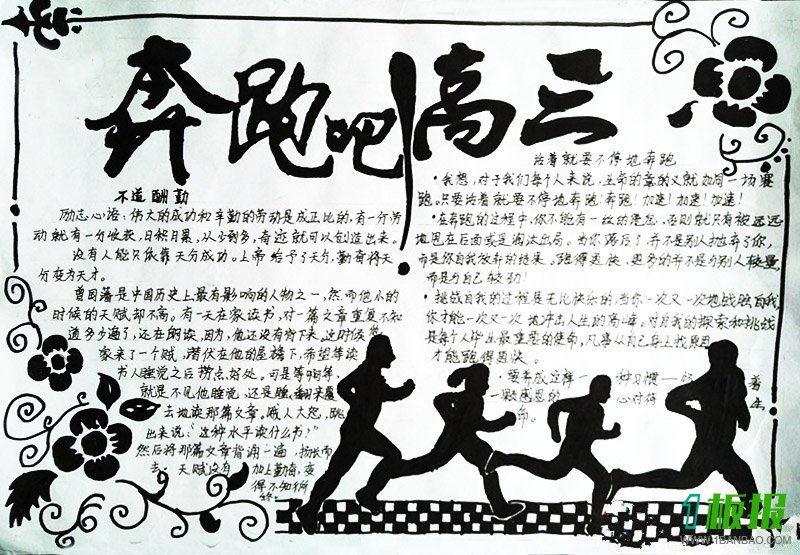 奔跑吧高三
不道酬勤
励志心语:伟大的成功和辛勤的劳动是成正比的,有一分劳
动就有一分收获,日积月累,从少到多,奇迹就可以创造出来。
没有人能只依靠天分成功。上帝给予了天分,勤奋将天
分变为天才。
曾国藩是中国历史上最有影响的人物之一,然而他小的
时候的天赋却不高。有一天在家读书,对一篇文章重复不知
道多少遍了,还在朗读,因为,他还没有背下来。这时候
家来了一个贼,潜伏在他的屋檐下,希望等读
书人睡觉之后捞点好处。可是等啊等,
就是不见他睡觉,还是翻来覆
去地读那篇文章。贼人大怒,跳
出来说:“这种水平读什么书?”
然后将那篇文章背诵一遍,扬长而
去。天赋没有 加上勤奋,变
得不知所
终
活着就要不停地奔跑
·我想,对于我们每个人来说,生命的意义就如同一场赛
跑。只要活着就要不停地奔跑,奔跑!加速!加速!加速!
·在奔跑的过程中,你不能有一丝的倦怠,否则就只有被远远
地甩在后面或是淘汰出局。当你落后了,并不是别人抛弃了你,
而是你自我放弃的结果。跑得更快,更多的并不是与别人较量,
而是与自己较劲!
·挑战自我的过程是无比快乐的,当你一次又一次地战胜自我,
你才能一次又一次地冲击人生的高峰。对自我的探索和挑战
是每个人毕业最重要的使命,凡事从自己身上找原因
才能跑得更快。
·要养成这样一 种习惯 着
一颗感恩的 心对待 生
命。
1板报
WWW.1BANBAO.COM